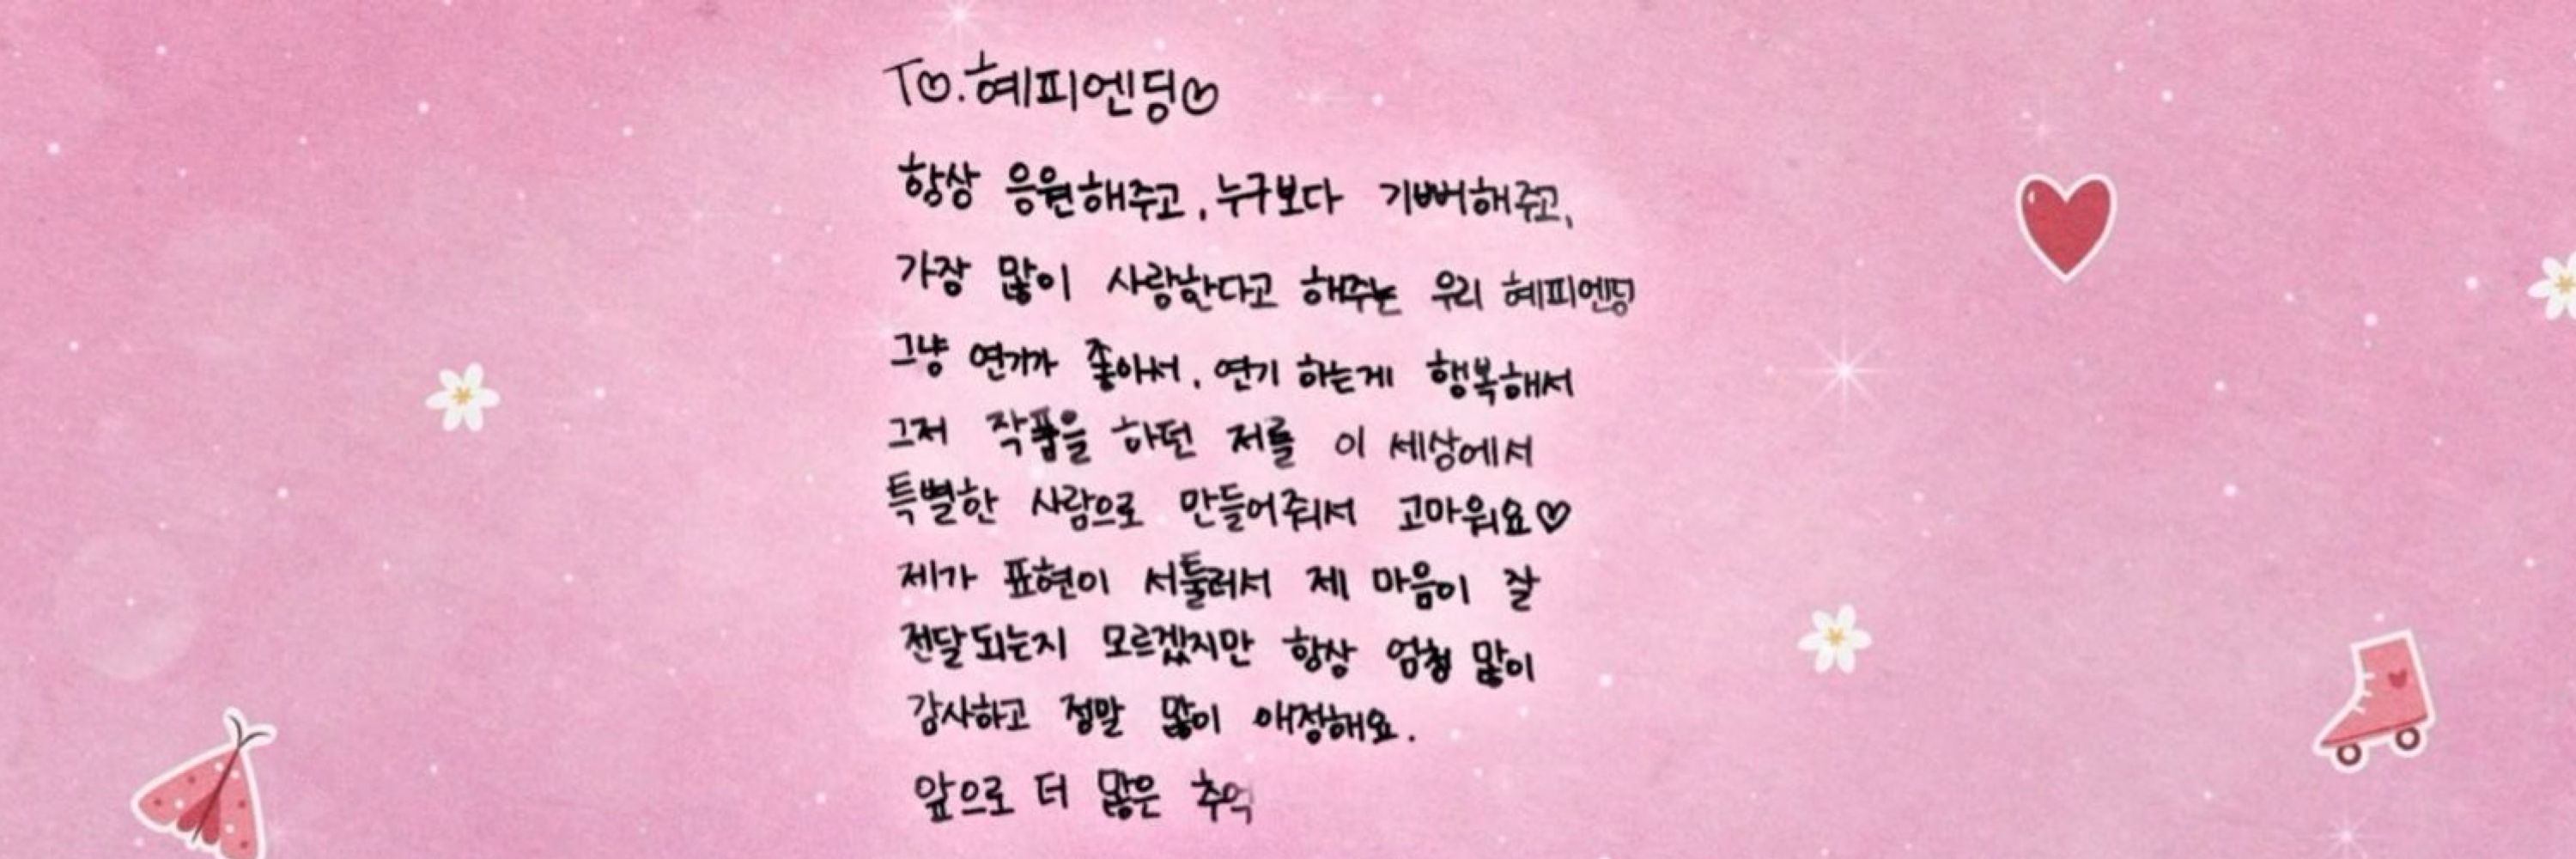 To.혜피엔딩♡
항상 응원해주고, 누구보다 기뻐해주고,
가장 많이 사랑한다고 해주는 우리 혜피엔딩
그냥 연기가 좋아서, 연기 하는게 행복해서
그저 작품을 하던 저를 이 세상에서
특별한 사람으로 만들어줘서 고마워요♡
제가 표현이 서툴러서 제 마음이 잘
전달되는지 모르겠지만 항상 엄청 많이
감사하고 정말 많이 애정해요.
앞으로 더 많은 추억